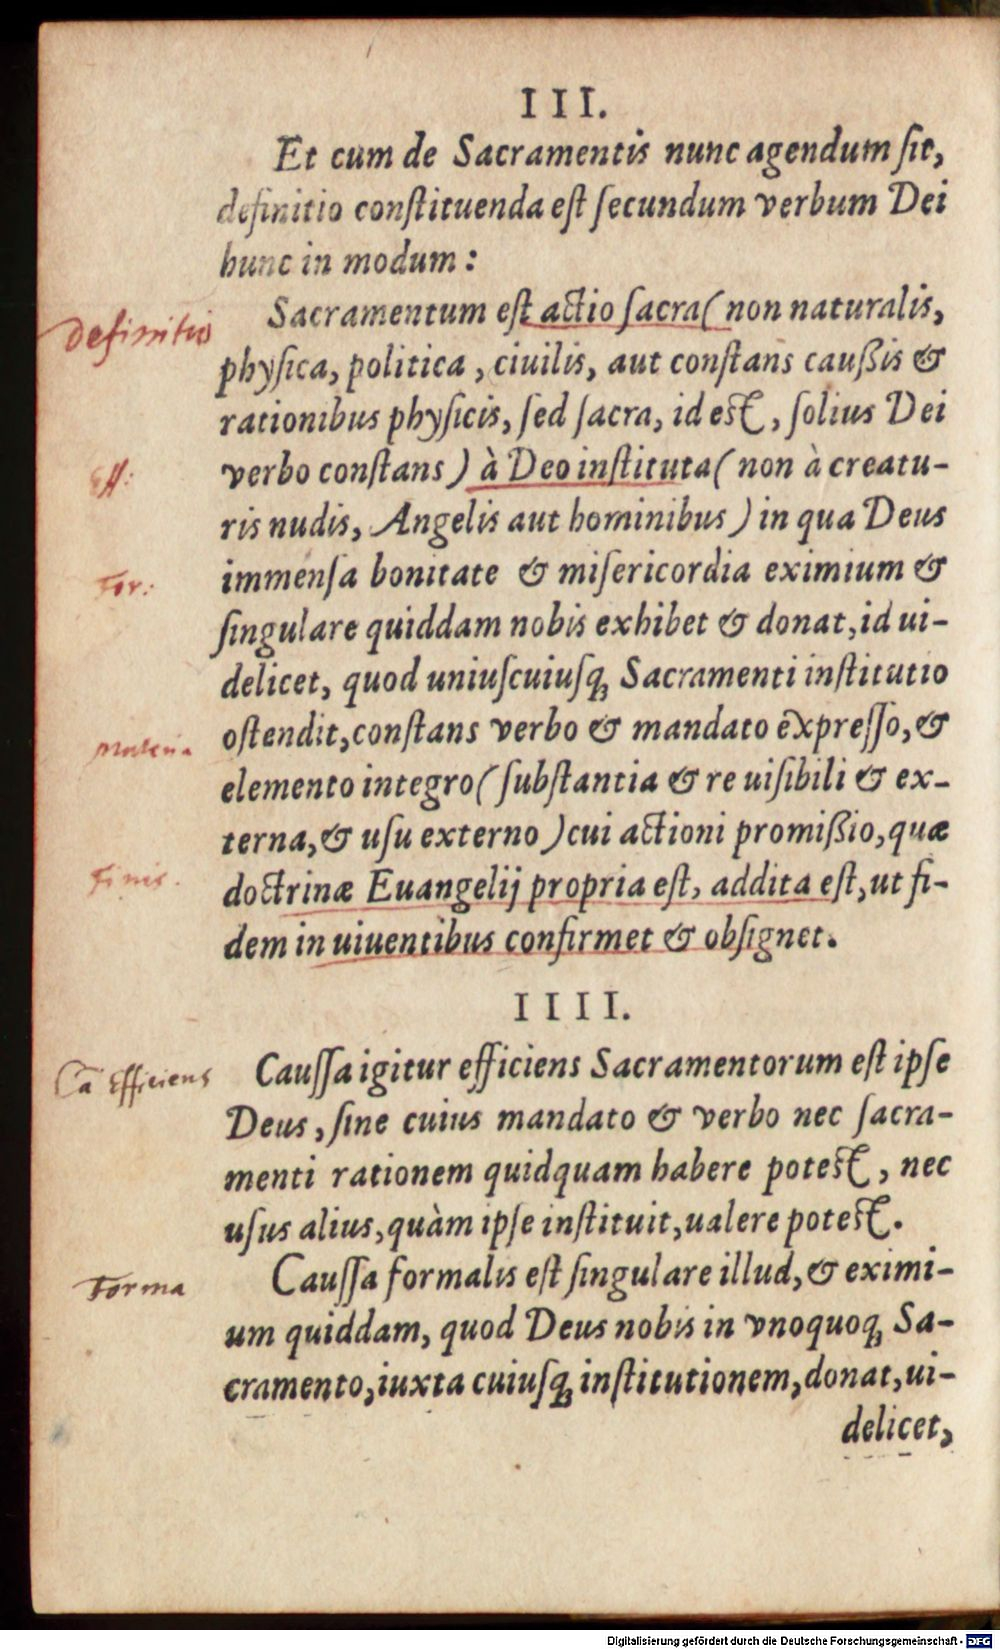 III.
Et cum de Sacramentis nunc agendum ſit,
definitio conſtituenda eſt ſecundum verbum Dei
hunc in modum :
Sacramentum eſt actio ſacra ( non naturalis,
definitio
phyſica, politica , ciuilis, aut conſtans cauſſis &
rationibus phyſicis, ſed ſacra, id est , ſolius Dei
verbo conſtans ) à Deo inſtituta ( non à creatu-
Eff:
ris nudis, Angelis aut hominibus ) in qua Deus
immenſa bonitate & miſericordia eximium &
For:
ſingulare quiddam nobis exhibet & donat, id ui-
delicet, quod uniuſcuiuſq; Sacramenti inſtitutio
oſtendit, conſtans verbo & mandato expreſſo, &
Materia
elemento integro ( ſubſtantia & re uiſibili & ex-
terna, & uſu externo ) cui actioni promiſſio, quæ
doctrinæ Euangelij propria eſt, addita eſt, ut fi-
finis.
dem in uiuentibus confirmet & obſignet.
IIII.
Cauſſa igitur efficiens Sacramentorum eſt ipſe
Ca Efficiens
Deus , ſine cuius mandato & verbo nec ſacra-
menti rationem quidquam habere potest , nec
uſus alius, quàm ipſe inſtituit, ualere potest.
Cauſſa formalis eſt ſingulare illud, & eximi-
Forma
um quiddam, quod Deus nobis in vnoquoq; Sa-
cramento, iuxta cuiuſq; inſtitutionem, donat, ui-
delicet,
Digitalisierung gefördert durch die Deutsche Forschungsgemeinschaft - DFG